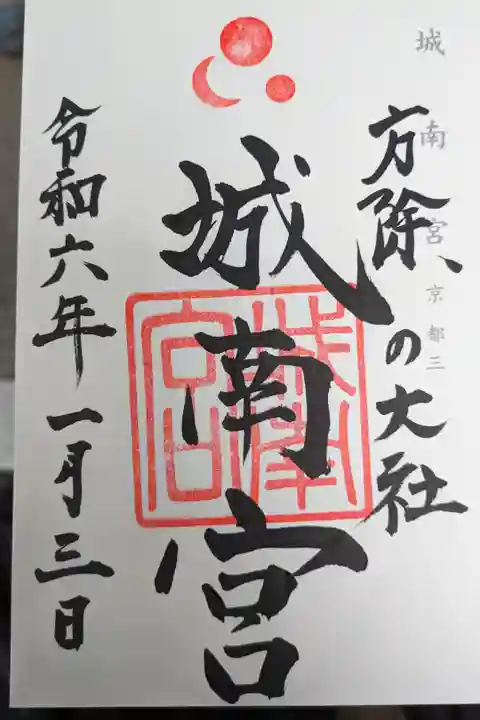 城南宮京都三
方除の大社
城南宮
城南宮
令和六年一月三日